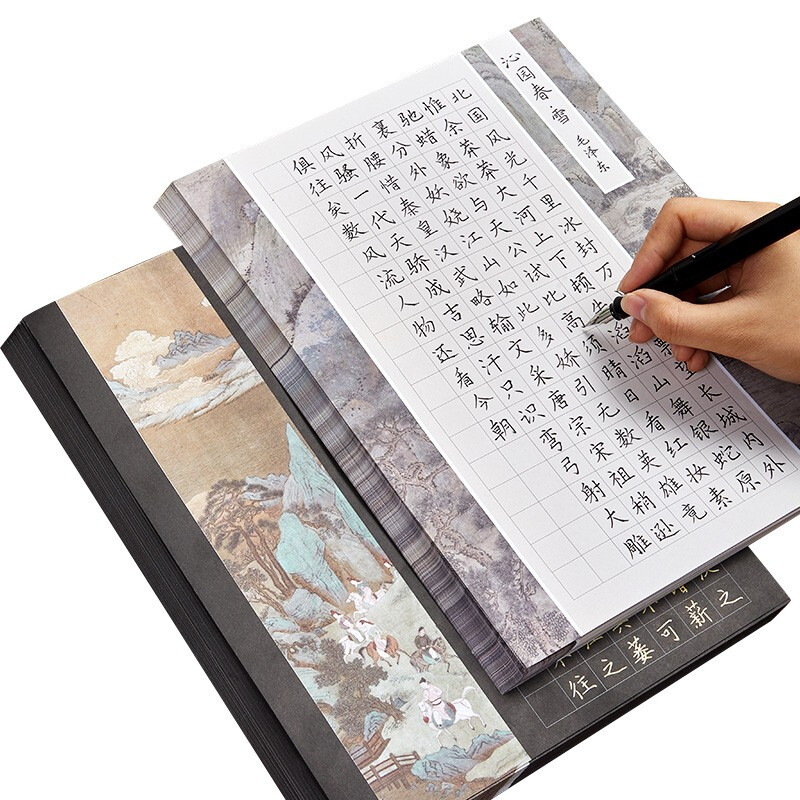 沁园春雪
毛泽东
北国风光千里冰封万飘望长城内外
惟余莽莽大河上下顿失滔滔山舞银蛇原
驰蜡象欲与天公试比高须晴日看红妆素
裹分外妖娆江山如此多娇引无数英雄竞
折腰惜秦皇汉武略输文采唐宗宋祖稍逊
风骚一代天骄成吉思汗只识弯弓射大雕
俱往矣数风流人物还看今朝
之
薪
可
蒌
之
往